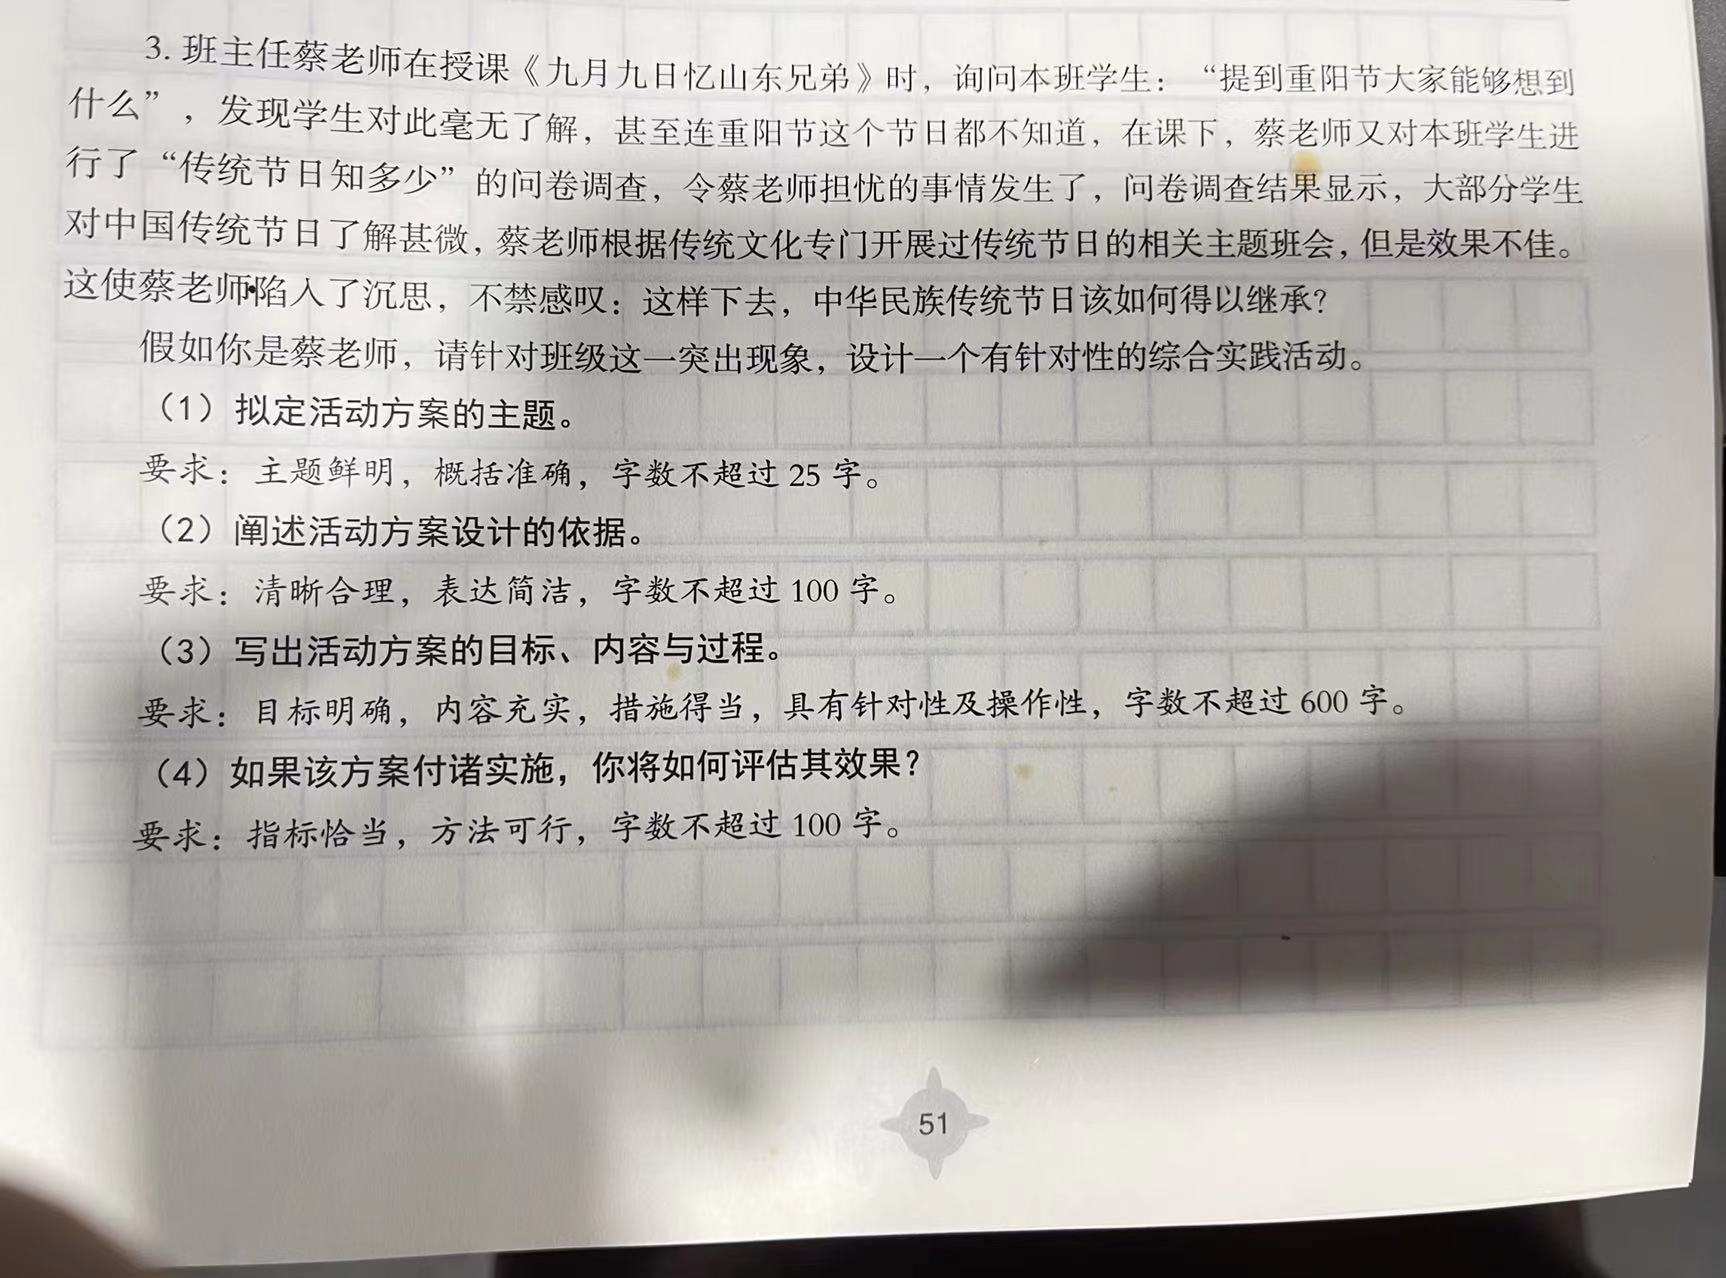 3. 班主任蔡老师在授课《九月九日忆山东兄弟》时，询问本班学生：“提到重阳节大家能够想到
什么”，发现学生对此毫无了解，甚至连重阳节这个节日都不知道，在课下，蔡老师又对本班学生进
行了“传统节日知多少”的问卷调查，令蔡老师担忧的事情发生了，问卷调查结果显示，大部分学生
对中国传统节日了解甚微，蔡老师根据传统文化专门开展过传统节日的相关主题班会，但是效果不佳。
这使蔡老师陷入了沉思，不禁感叹：这样下去，中华民族传统节日该如何得以继承？
假如你是蔡老师，请针对班级这一突出现象，设计一个有针对性的综合实践活动。
（1）拟定活动方案的主题。
要求：主题鲜明，概括准确，字数不超过 25 字。
（2）阐述活动方案设计的依据。
要求：清晰合理，表达简洁，字数不超过 100 字。
（3）写出活动方案的目标、内容与过程。
要求：目标明确，内容充实，措施得当，具有针对性及操作性，字数不超过 600 字。
（4）如果该方案付诸实施，你将如何评估其效果？
要求：指标恰当，方法可行，字数不超过 100 字。
51